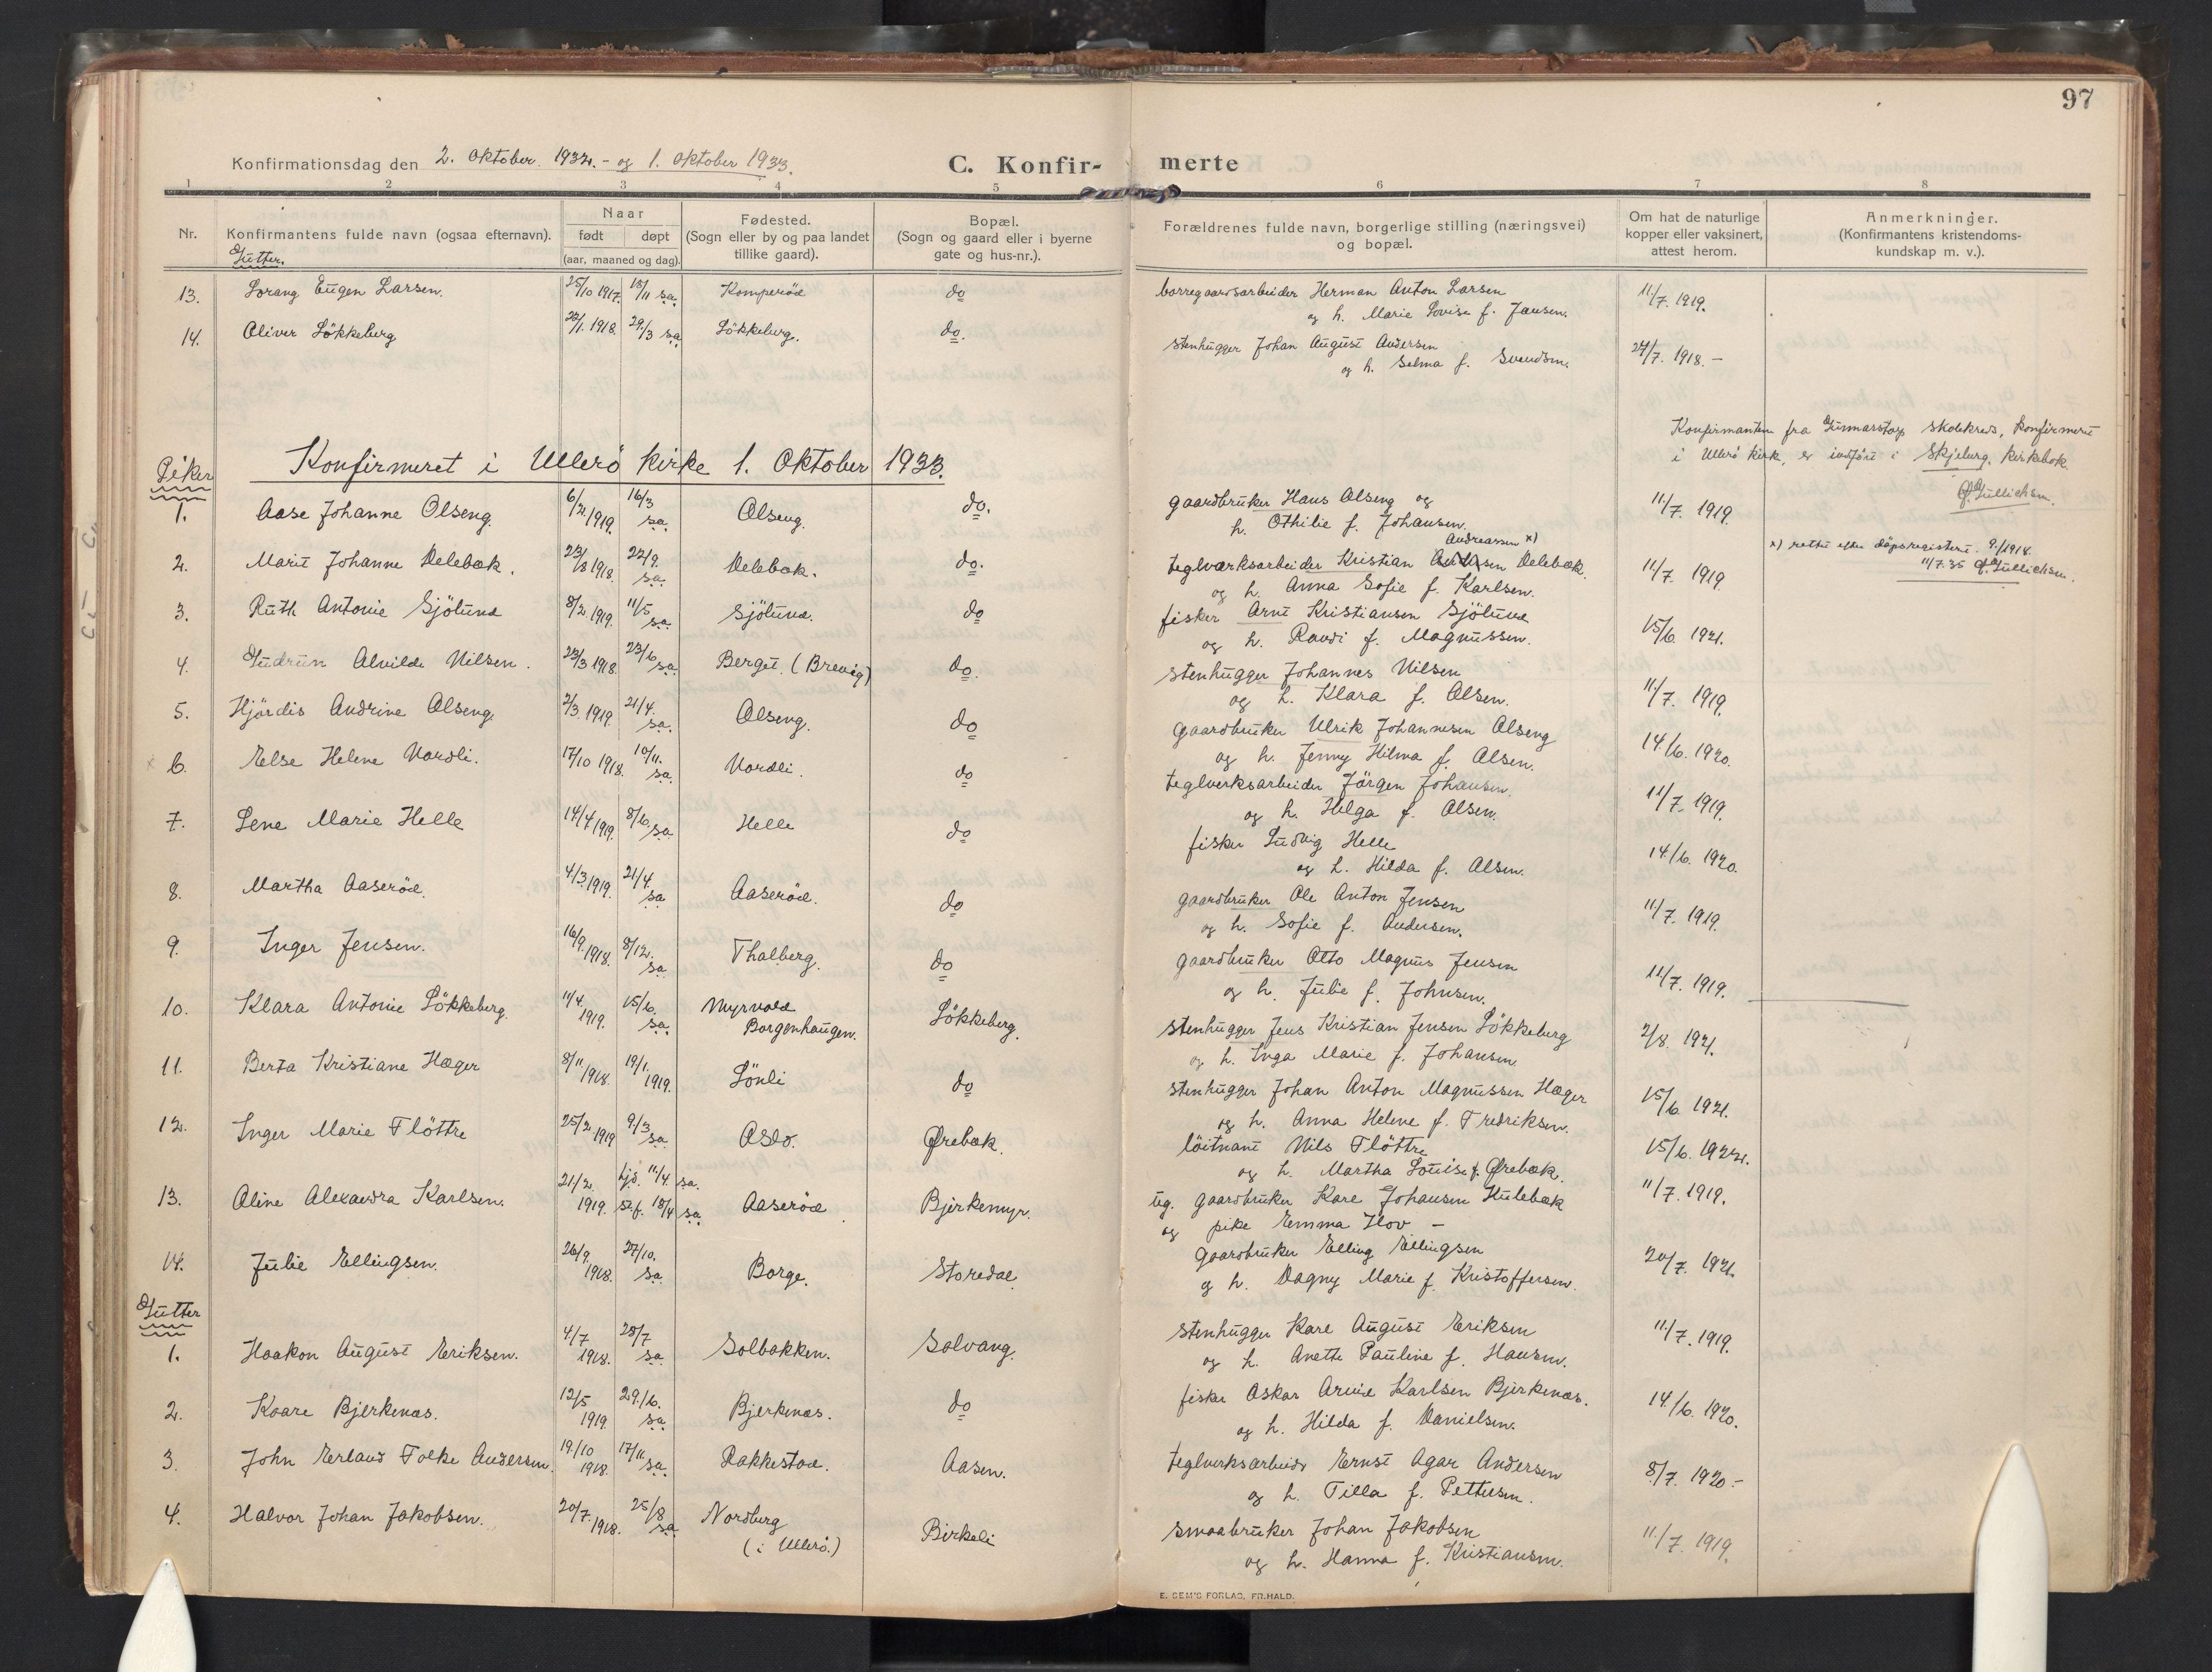 97
Konfirmationsdag den 2. oktober 1932. - og 1. oktober 1933.
C. Konfir- merte
1 2 3 4 5 6 7 8
Nr. Konfirmantens fulde navn (ogsaa efternavn). Naar født døpt (aar, maaned og dag). Fødested. (Sogn eller by og paa landet tillike gaard). Bopæl. (Sogn og gaard eller i byerne gate og hus-nr.). Forældrenes fulde navn, borgerlige stilling (næringsvei) og bopæl. Om hat de naturlige kopper eller vaksinert, attest herom. Anmerkninger. (Konfirmantens kristendoms- kundskap m. v.).
Gutter.
13. Lorang Eugen Larsen. 25/10 1917. 18/11 sa. Komperöd do borregaardsarbeider Herman Anton Larsen 11/7. 1919.
og h. Marie Lovise f. Jansen.
14. Oliver Lökkeberg 22/1. 1918. 29/3 sa. Lökkeberg. do. stenhugger Johan August Andersen 24/7. 1918. -
og h. Selma f. Svendsen.
Konfirmanten fra Gunnarstorp skolekreds, konfirmert
i Ullerö kirke, er indført i Skjeberg kirkebok.
Gullichsen.
Konfirmeret i Ullerö kirke 1. Oktober 1933.
Piker
1. Aase Johanne Olseng. 6/2. 1919. 16/3 sa. Olseng. do. gaardbruker Hans Olseng og 11/7. 1919.
h. Othilie f. Johansen.
Andreassen x)
2. Marit Johanne Delebæk. 23/8 1918. 22/9. sa. Delebæk. do. teglværksarbeider Kristian Delebæk. 11/7. 1919. x) rettet efter döpsregisteret. 9/1918.
og h. Anna Sofie f. Karlsen. 11/7.35 Gullichsen.
3. Ruth Antonie Sjölund 8/2. 1919. 11/5 sa. Sjölund. do fisker Arnt Kristiansen Sjölund 15/6. 1921.
og h. Randi f. Magnussen.
4. Gudrun Alvilde Nilsen. 23/3 1918. 23/6 sa. Berget. (Brevig) do. stenhugger Johannes Nilsen 11/7. 1919.
og h. Klara f. Olsen.
5. Hjördis Andrine Olseng. 2/3. 1919. 21/4. sa. Olseng. do gaardbruker Ulrik Johannesen Olseng 14/6. 1920.
og h. Jenny Hilma f. Olsen.
6. Else Helene Nordli. 17/10 1918. 10/11. sa. Nordli. do teglverksarbeider Jörgen Johansen. 11/7. 1919.
og h. Helga f. Olsen.
7. Lene Marie Helle 14/4 1919. 8/6 sa. Helle do fisker Ludvig Helle 14/6. 1920.
og h. Hilda f. Olsen.
8. Martha Aaseröd. 4/3. 1919. 21/4 sa Aaseröd. do gaardbruker Ole Anton Jensen 11/7. 1919.
og h. Sofie f. Andersen.
9. Inger Jensen. 16/9. 1918. 8/12. sa. Thalberg. do gaardbruker Otto Magnus Jensen 11/7. 1919.
og h. Julie f. Johnsen.
10. Klara Antonie Lökkeberg. 11/4. 1919. 15/6. sa. Myrvold Borgenhaugen. Lökkeberg. stenhugger Jens Kristian Jensen Lökkeberg 2/8. 1921.
og h. Inga Marie f. Johansen.
11. Berta Kristiane Hæger 8/11 1918. 19/1. 1919. Lönli do stenhugger Johan Anton Magnussen Hæger 15/6 1921.
og h. Anna Helene f. Fredriksen.
12. Inger Marie Flöttre 25/2 1919 9/3 sa Oslo. Ørebæk. löitnant Nils Flöttre 15/6. 1922.
og h. Martha Louise f. Ørebæk.
13. Aline Alexandra Karlsen. 21/2. 1919. hjd. 11/4. sa. st.f. 18/4 sa Aaseröd Bjerkemyr. ug. gaardbruker Kare Johansen Hulebæk 11/7. 1919.
og pike Emma Hov -
14. Julie Ellingsen. 26/9. 1918. 27/10. sa. Borge. Storedal gaardbruker Elling Ellingsen 20/7. 1921.
og h. Dagny Marie f. Kristoffersen.
Gutter
1. Haakon August Eriksen. 4/7 1918. 28/7 sa Solbakken. Solvang. stenhugger Kare August Eriksen 11/7. 1919.
og h. Anette Pauline f. Hansen.
2. Kaare Bjerkenæs. 12/5 1919. 29/6. sa Bjerkenæs. do fisker Oskar Arvid Karlsen Bjerkenæs. 14/6. 1920.
og h. Hilda f. Danielsen.
3. John Erland Folke Andersen. 19/10 1918. 17/11 sa. Rakkestad. Aasen. teglverksarbeider Ernst Agar Andersen 8/7. 1920. -
og h. Tilla f. Pettersen.
4. Halvor Johan Jakobsen. 20/7. 1918. 25/8 sa. Nordberg (i Ullerö.) Birkeli smaabruker Johan Jakobsen 11/7. 1919.
og h. Hanna f. Kristiansen.
E. SEM'S FORLAG, FR.HALD.